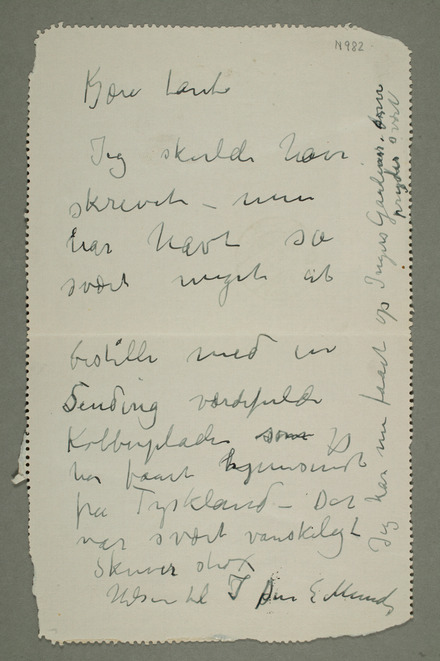 N 982
Kjære tante
Jeg skulde havt
skrevet – men
har havt saa
svært meget at
bestille med en
Sending værdifulde
Kobberplader som jeg
har faaet hjemsendt
fra Tyskland – Det
var svært vanskeligt
Skriver strax
Hilsen til I Din E Munch
Jeg har nu faaet op Ingers Gardiner, som
pryder svært